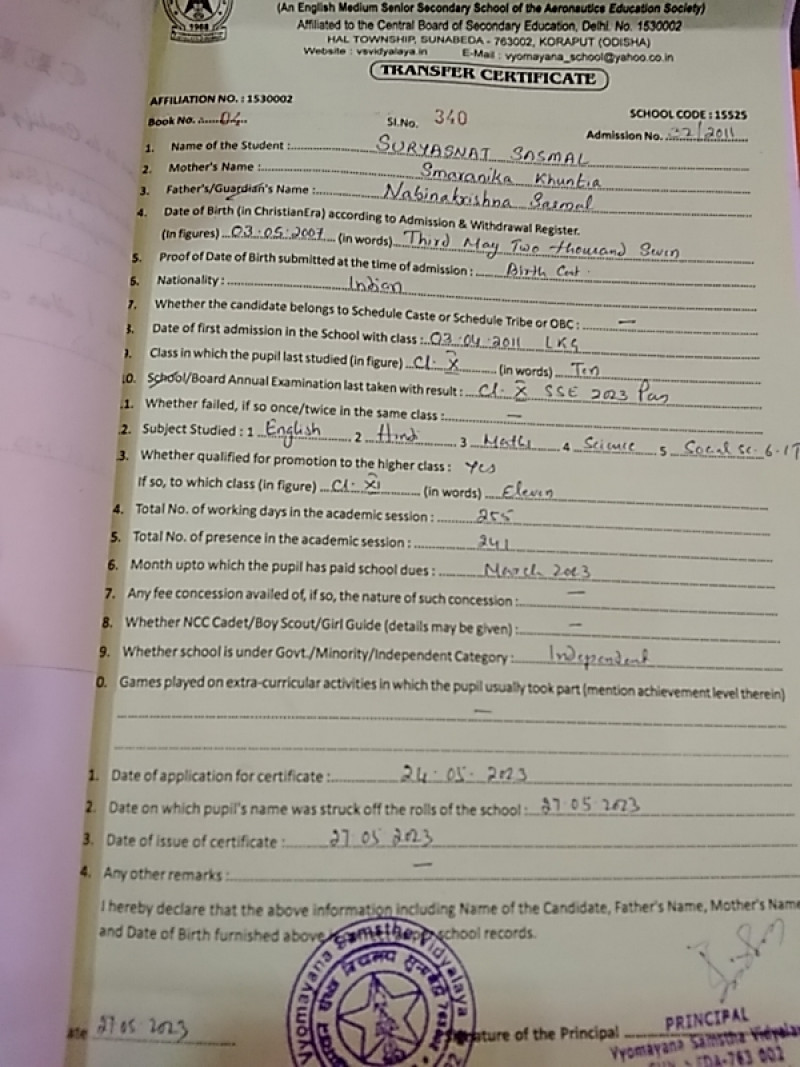 1968
(An English Medium Senior Secondary School of the Aeronautics Education Society)
Affiliated to the Central Board of Secondary Education, Delhi. No. 1530002
HAL TOWNSHIP, SUNABEDA - 763002, KORAPUT (ODISHA)
Website : vsvidyalaya.in E-Mail : vyomayana_school@yahoo.co.in
TRANSFER CERTIFICATE
AFFILIATION NO. : 1530002 SCHOOL CODE : 15525
Book No. 04 Sl.No. 340 Admission No. 22/2011
1. Name of the Student : SURYASNAT SASMAL
2. Mother's Name : Smaranika Khuntia
3. Father's/Guardian's Name : Nabinakrishna Sasmal
4. Date of Birth (in ChristianEra) according to Admission & Withdrawal Register.
(In figures) 03.05.2007 (in words) Third May Two thousand Seven
5. Proof of Date of Birth submitted at the time of admission : Birth Cert.
6. Nationality : Indian
7. Whether the candidate belongs to Schedule Caste or Schedule Tribe or OBC : —
8. Date of first admission in the School with class : 03.04.2011 LKG
9. Class in which the pupil last studied (in figure) Cl. X (in words) Ten
10. School/Board Annual Examination last taken with result : Cl. X SSE 2023 Pass
1. Whether failed, if so once/twice in the same class : —
2. Subject Studied : 1 English 2 Hindi 3 Maths 4 Science 5 Social Sc. 6 - IT
3. Whether qualified for promotion to the higher class : Yes
If so, to which class (in figure) Cl. XI (in words) Eleven
4. Total No. of working days in the academic session : 255
5. Total No. of presence in the academic session : 241
6. Month upto which the pupil has paid school dues : March 2023
7. Any fee concession availed of, if so, the nature of such concession : —
8. Whether NCC Cadet/Boy Scout/Girl Guide (details may be given) : —
9. Whether school is under Govt./Minority/Independent Category : Independent
0. Games played on extra-curricular activities in which the pupil usually took part (mention achievement level therein)
—
1. Date of application for certificate : 24.05.2023
2. Date on which pupil's name was struck off the rolls of the school : 27.05.2023
3. Date of issue of certificate : 27.05.2023
4. Any other remarks : —
I hereby declare that the above information including Name of the Candidate, Father's Name, Mother's Name
and Date of Birth furnished above school records.
Vyomayana Samstha Vidyalaya
ate 27.05.2023 Signature of the Principal
PRINCIPAL
Vyomayana Samstha Vidyalay
DA-763 002